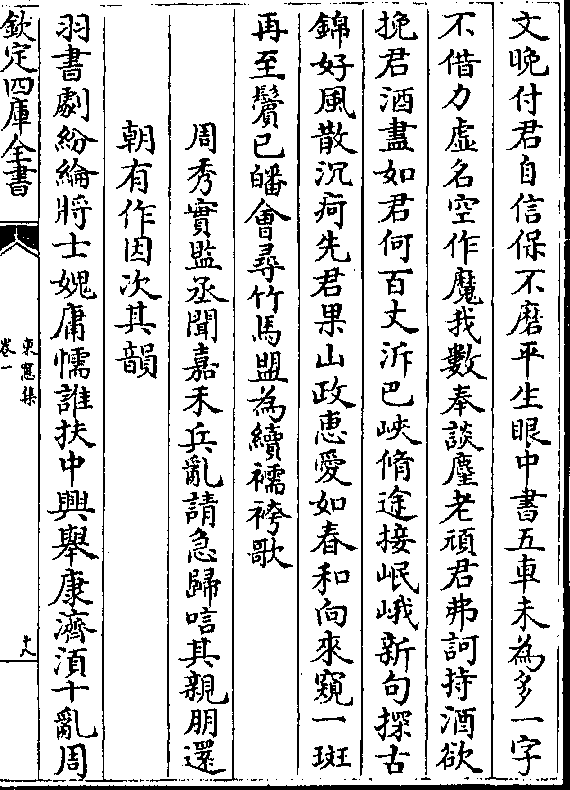 文晩付君自信保不磨平生眼中書五車未為多一字
不借力虚名空作魔我數奉談麈老頑君弗訶持酒欲
挽君酒盡如君何百丈泝巴峽脩途接岷峨新句探古
錦好風散沉疴先君果山政恵愛如春和向來窺一斑
再至鬢已皤會尋竹馬盟為續襦袴歌
周秀實監丞聞嘉禾兵亂請急歸唁其親朋還
朝有作因次其韻
羽書劇紛綸將士媿庸懦誰扶中興舉康濟須十亂周
欽定四庫全書
東窓集
卷一
十八